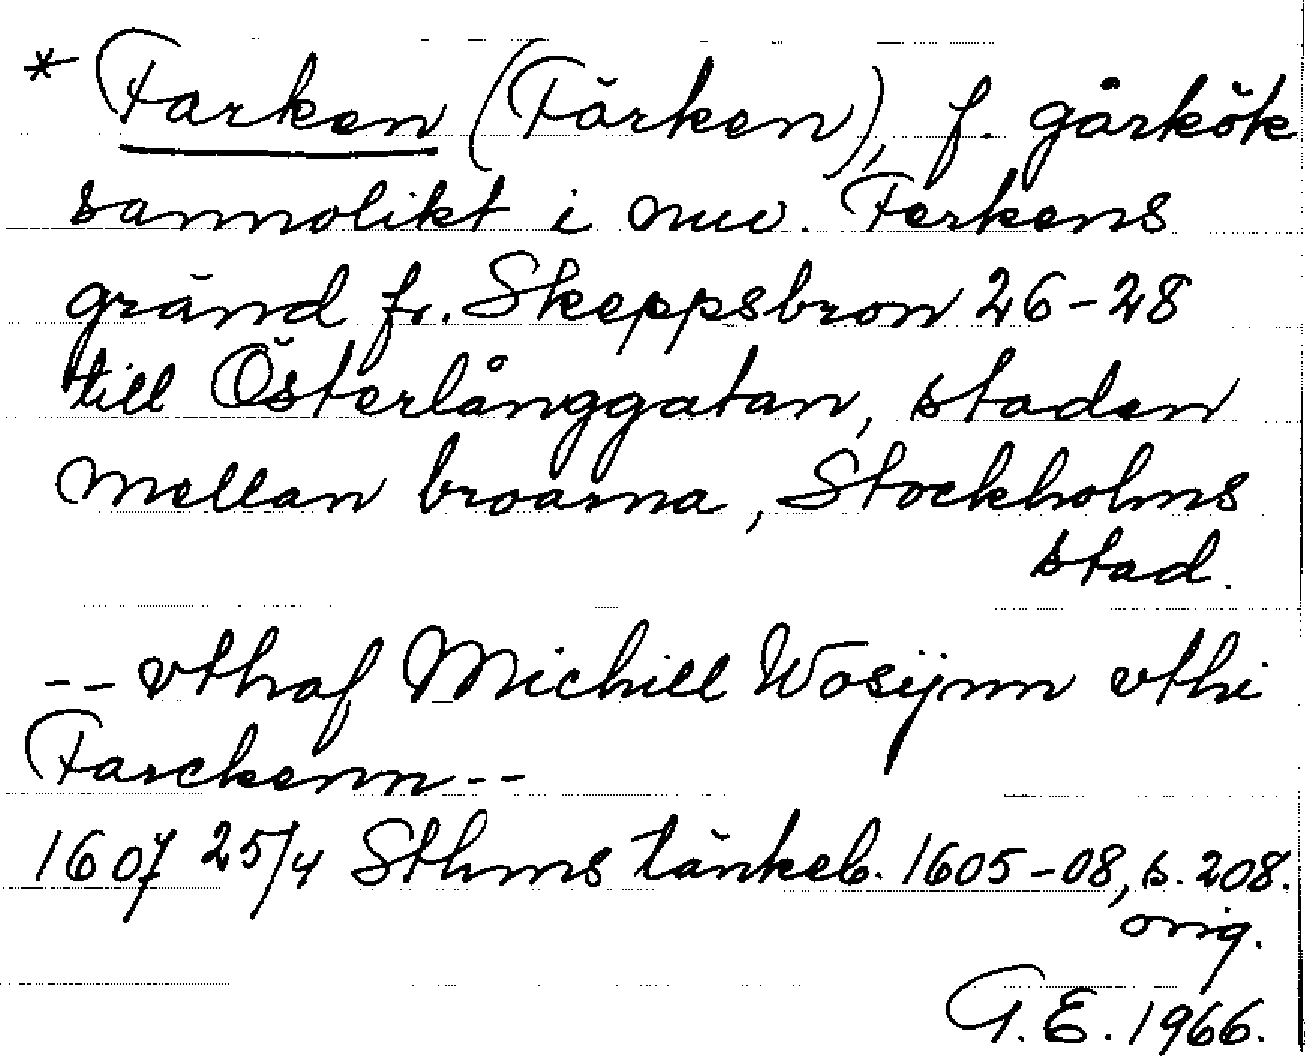 * Farken (Färken), f. gårkök
sannolikt i nuv. Ferkens
gränd fr. Skeppsbron 26-28
till Österlånggatan, staden
mellan broarna, Stockholms
stad.
-- vthaf Michill Wosijnn vthi
Farckenn--
1607 25/4 Sthms tänkeb. 1605-08, s. 208.
orig.
G.E. 1966.